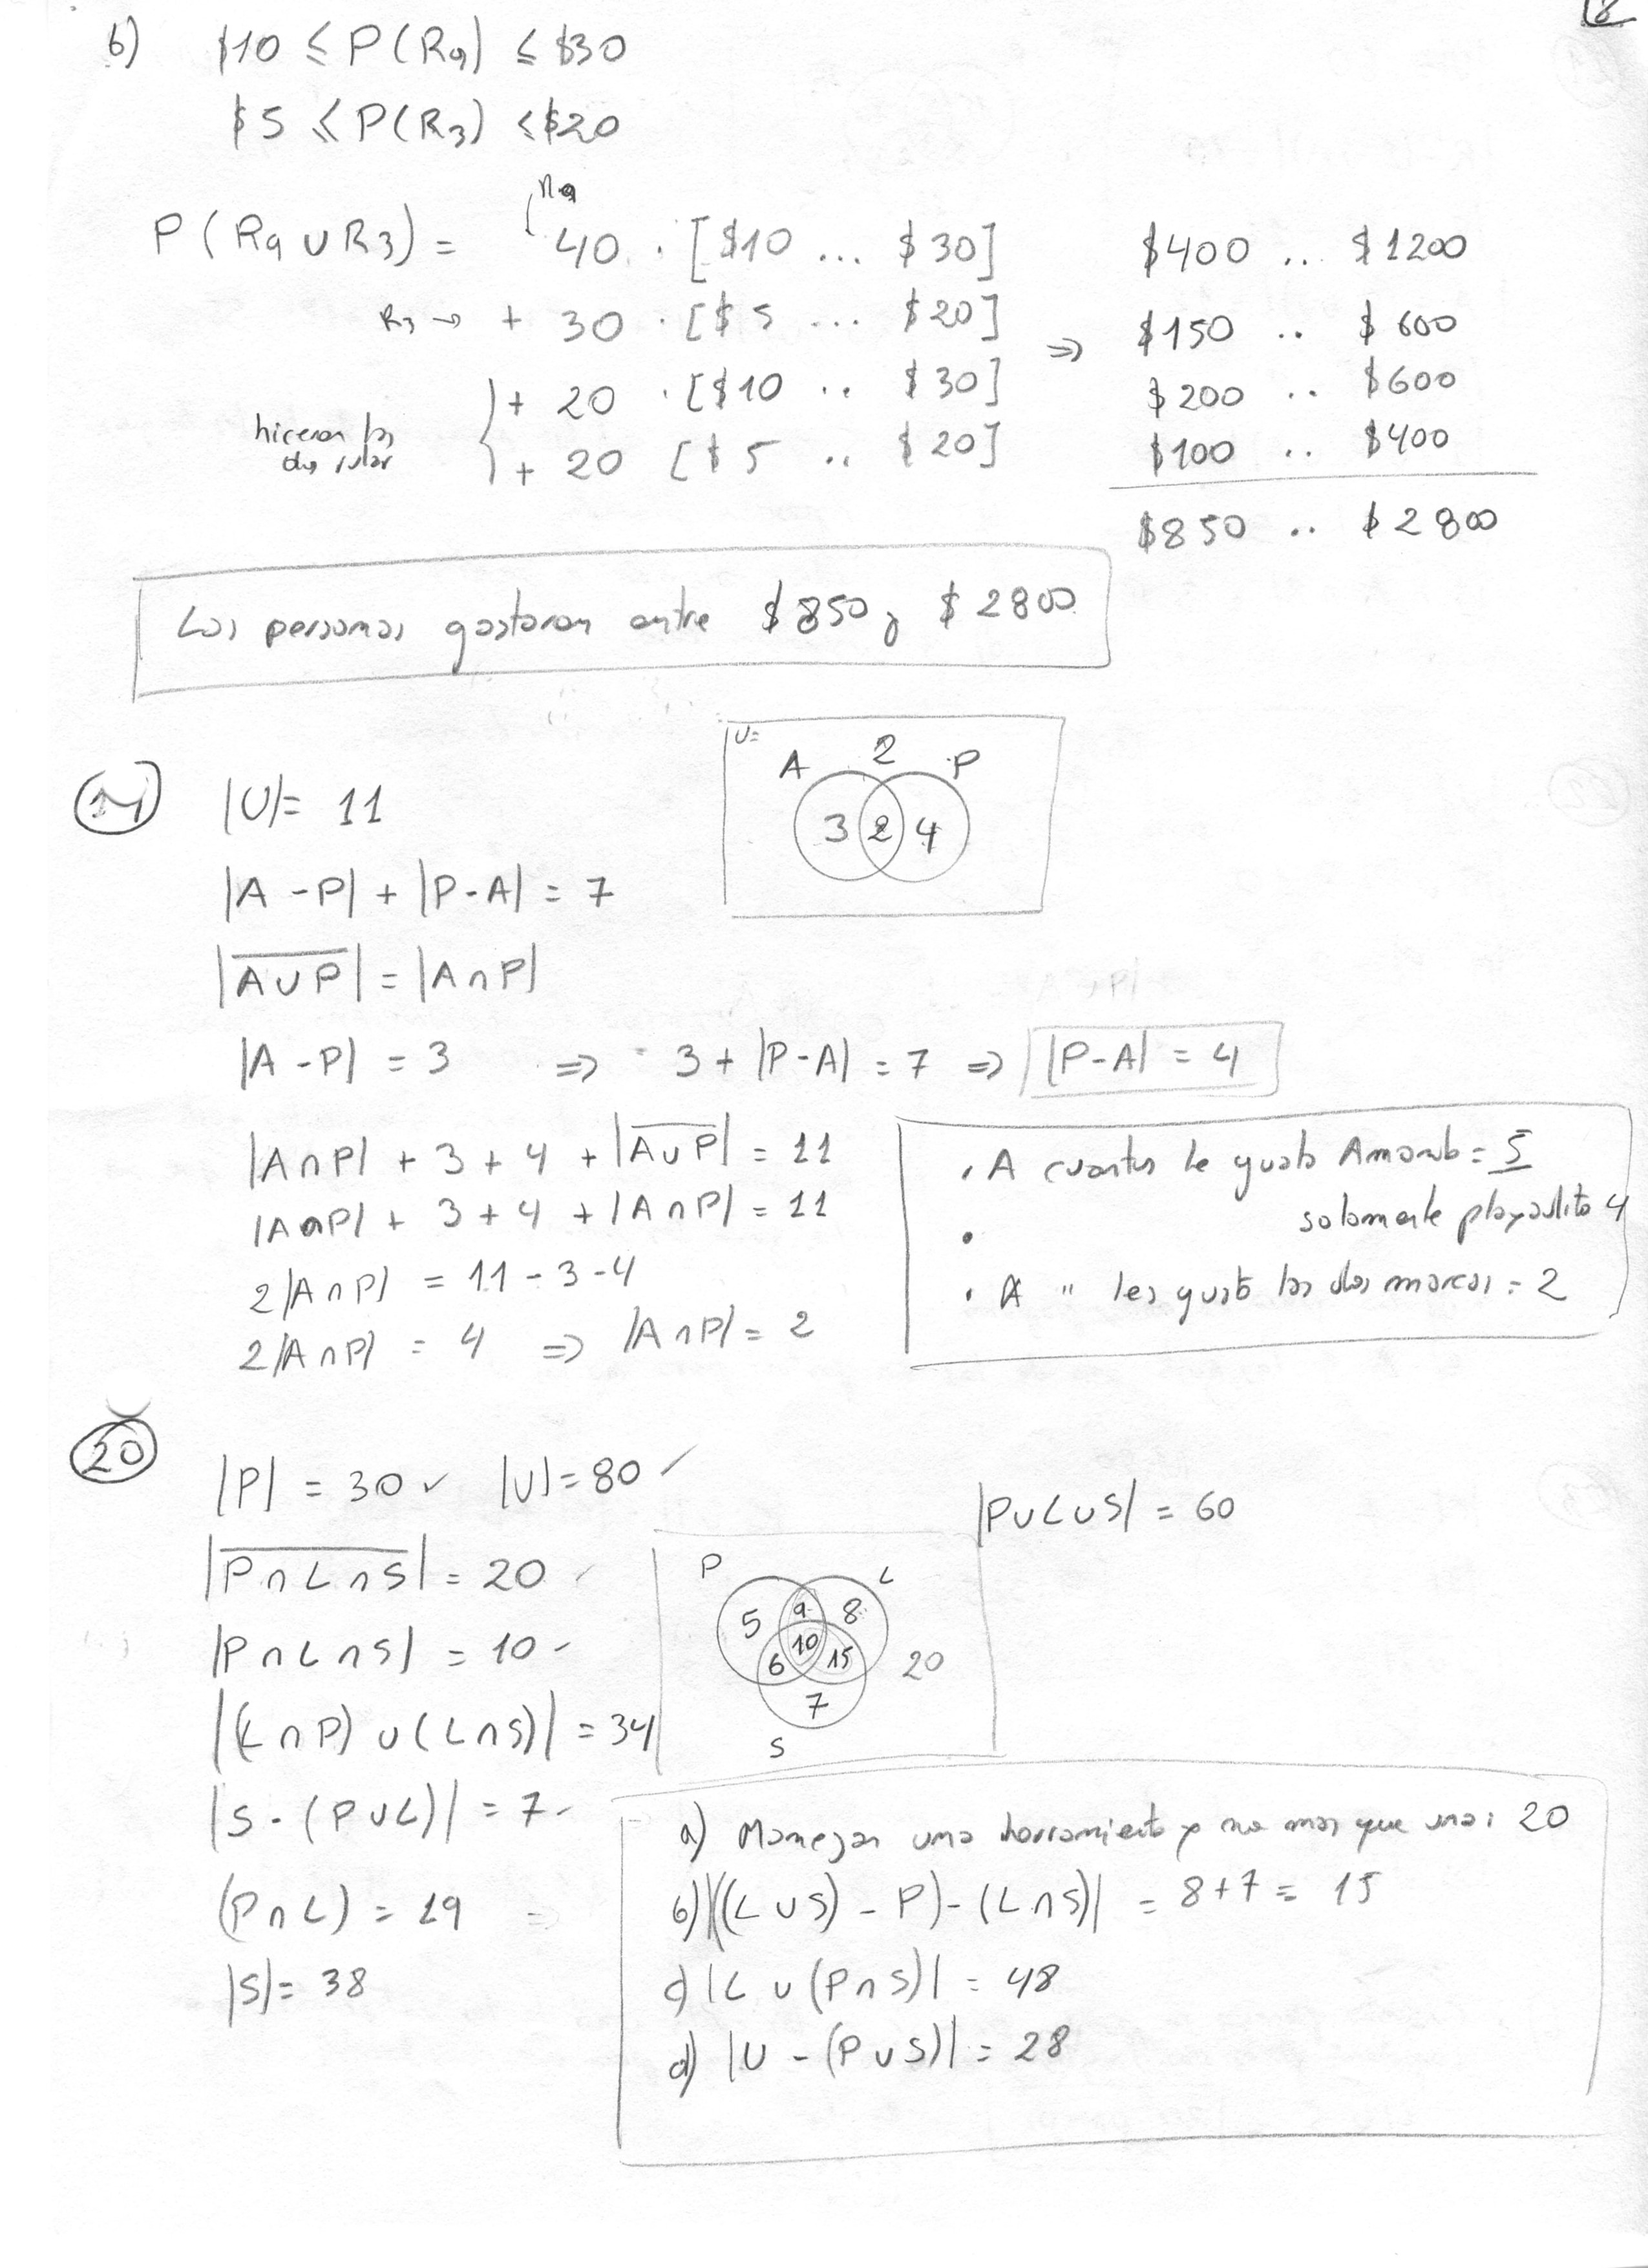 b) $10 ≤ P(R9) ≤ $30
$5 ≤ P(R3) ≤ $20
R9
P(R9 ∪ R3) = 40 · [$10 ... $30] $400 .. $1200
R3 → + 30 · [$5 ... $20] ⇒ $150 .. $600
+ 20 · [$10 .. $30] $200 .. $600
hicieron las dos rutas + 20 [$5 .. $20] $100 .. $400
$850 .. $2800
Las personas gastaron entre $850 y $2800
|U| = 11
U=
A 2 P
3 2 4
|A - P| + |P - A| = 7
|A̅ ̅∪̅ ̅P̅| = |A ∩ P|
|A - P| = 3 ⇒ 3 + |P - A| = 7 ⇒ |P - A| = 4
|A ∩ P| + 3 + 4 + |A̅ ̅∪̅ ̅P̅| = 11
|A ∩ P| + 3 + 4 + |A ∩ P| = 11
2|A ∩ P| = 11 - 3 - 4
2|A ∩ P| = 4 ⇒ |A ∩ P| = 2
· A cuantos le gusta Amanda = 5
· solamente playadito 4
· A " les gusta las dos marcas = 2
20
|P| = 30 ✓ |U| = 80 ✓
|P ∪ L ∪ S| = 60
|P̅ ̅∩̅ ̅L̅ ̅∩̅ ̅S̅| = 20
|P ∩ L ∩ S| = 10
|(L ∩ P) ∪ (L ∩ S)| = 34
|S - (P ∪ L)| = 7
(P ∩ L) = 19
|S| = 38
P L
5 9 8
10
6 15 20
7
S
a) Manejan una herramienta y no mas que una: 20
b) |((L ∪ S) - P) - (L ∩ S)| = 8 + 7 = 15
c) |L ∪ (P ∩ S)| = 48
d) |U - (P ∪ S)| = 28